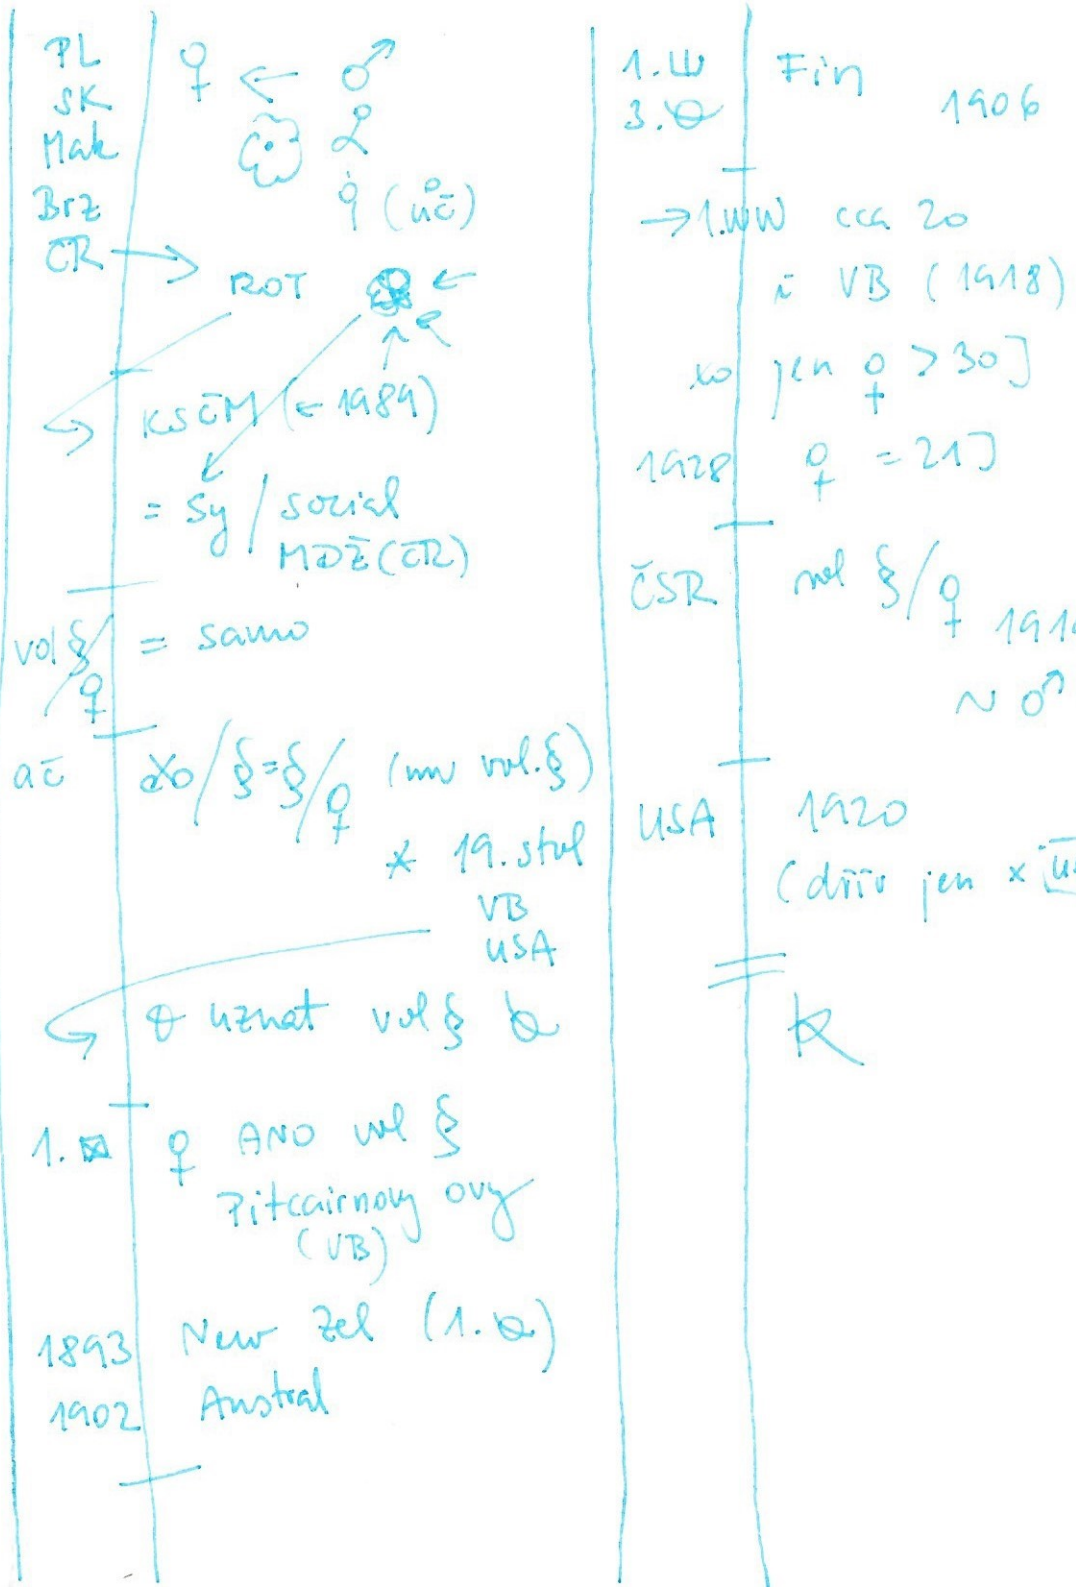 PL
SK
Mak
Brz
ČR
♀ ← ♂
(uč)
ROT
KSČM (← 1989)
= Sy / social
MDŽ (ČR)
vol § / ♀ = samo
ač
/ § = § / ♀ (vol. §)
* 19. stol
VB
USA
uznat vol §
1. ♀ ANO vol §
Pitcairnovy ovy
(VB)
1893 New Zel (1.
1902 Austral
1. Fin
3. 1906
→ 1.WW cca 20
i VB (1918)
jen ♀ > 30]
1928 ♀ = 21]
ČSR vol § / ♀ 191
~ ♂
USA 1920
(dřív jen ×